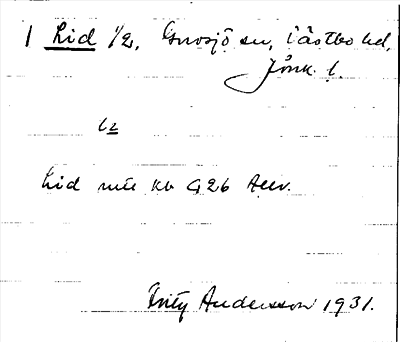 1 Lid 1/2, Gnosjö sn, Västbo hd,
Jönk. l.
Lid kb 926
Fritz Andersson 1931.